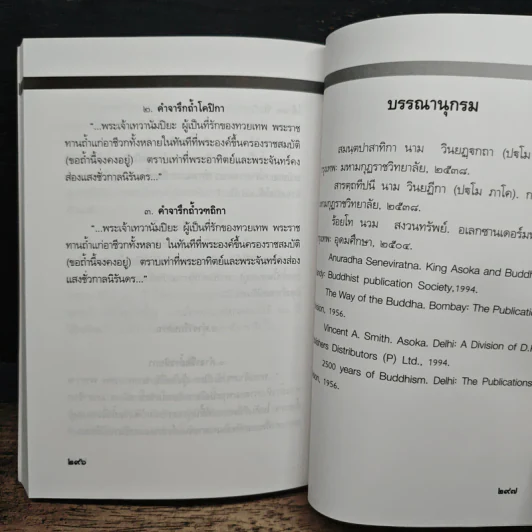 ๒. คำจารึกถ้ำโคปิกา
"...พระเจ้าเทวานัมปิยะ ผู้เป็นที่รักของทวยเทพ พระราช
ทานถ้ำแก่อาชีวกทั้งหลายในทันทีที่พระองค์ขึ้นครองราชสมบัติ
(ขอถ้ำนี้จงคงอยู่) ตราบเท่าที่พระอาทิตย์และพระจันทร์คง
ส่องแสงชั่วกาลนิรันดร..."
๓. คำจารึกถ้ำวฑถิกา
"...พระเจ้าเทวานัมปิยะ ผู้เป็นที่รักของทวยเทพ พระราช
ทานถ้ำแก่อาชีวกทั้งหลาย ในทันทีที่พระองค์ขึ้นครองราชสมบัติ
(ขอถ้ำนี้จงคงอยู่) ตราบเท่าที่พระอาทิตย์และพระจันทร์คงส่อง
แสงชั่วกาลนิรันดร..."
๒๙๖
บรรณานุกรม
สมนฺตปาสาทิกา นาม วินยฏฺฐกถา (ปฐโม
มหามกุฏราชวิทยาลัย, ๒๕๓๘.
สารตฺถทีปนี นาม วินยฏีกา (ปฐโม ภาโค).
มกุฏราชวิทยาลัย, ๒๕๓๘.
ร้อยโท นวม สงวนทรัพย์. อเลกซานเดอร์
อุดมศึกษา, ๒๕๐๔.
Anuradha Seneviratna. King Asoka and Buddh
Buddhist publication Society,1994.
The Way of the Buddha. Bombay: The Publication
1956.
Vincent A. Smith. Asoka. Delhi: A Division of D.
Distributors (P) Ltd., 1994.
2500 years of Buddhism. Delhi: The Publications
1956.
๒๙๗